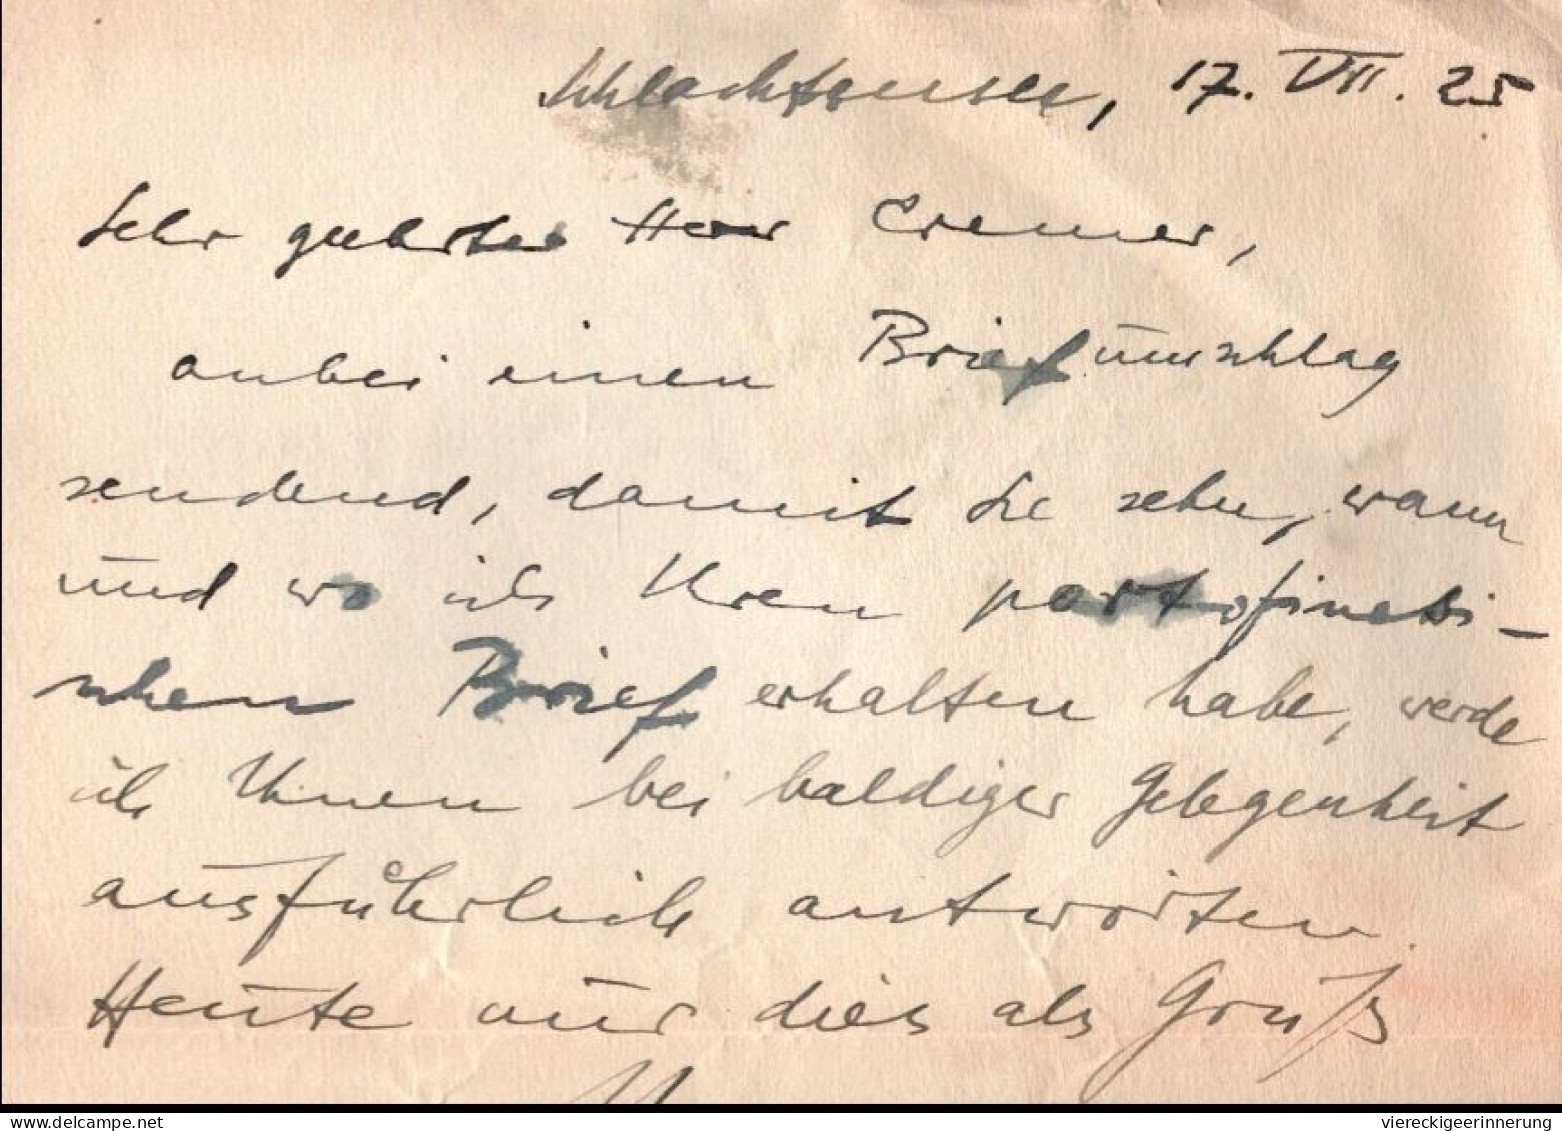 Schlachtensee, 17. VII. 25
Sehr geehrter Herr Cremer,
anbei einen Briefumschlag
sendend, damit Sie sehn, wann
und wo ich Ihren portofinesi-
schen Brief erhalten habe, werde
ich Ihnen bei baldiger Gelegenheit
ausführlich antworten.
Heute nur dies als Gruß
www.delcampe.net
viereckigeerinnerung